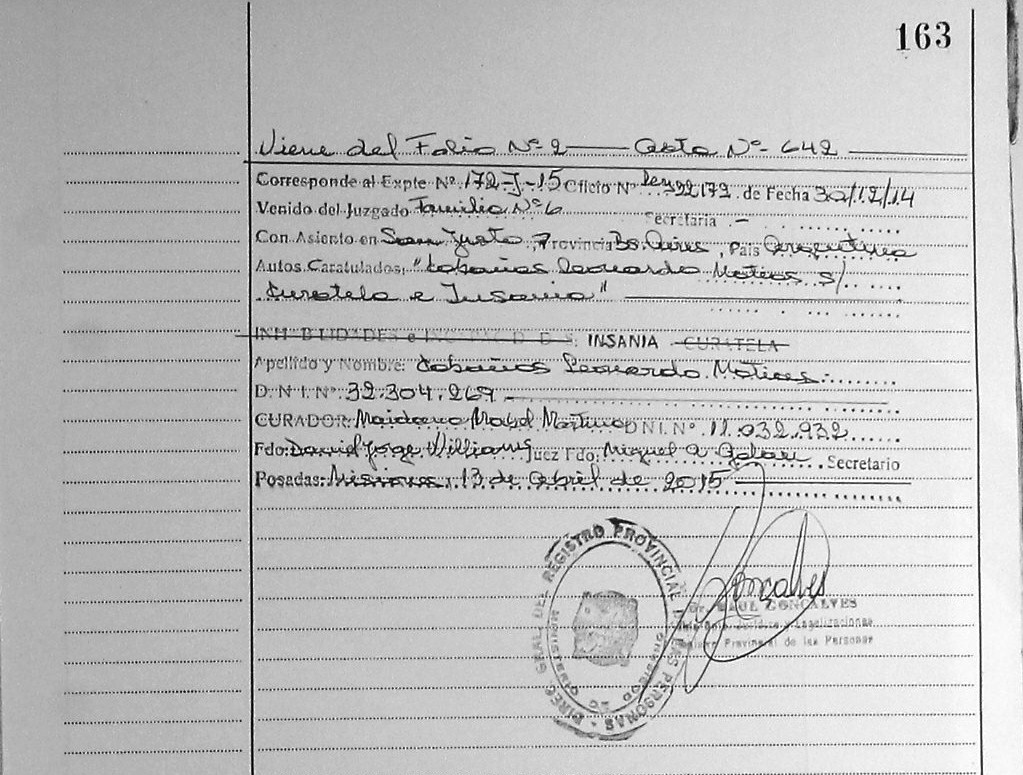 163
Viene del Folio Nº 2 — Acta Nº - 642 —
Corresponde al Expte Nº 172-J-15 Oficio Nº Ley 22172 de Fecha 30/12/14
Venido del Juzgado Familia Nº 6 Secretaria . -
Con Asiento en San Justo, Provincia Bs. Aires, Pais Argentina
Autos Caratulados, "Cabañas Leonardo Matias s/
Curatela e Insania" —
INHABILIDADES e INCAPACIDADES: INSANIA CURATELA
Apellido y Nombre: Cabañas Leonardo Matias.
D. N. I. Nº 32.304.269
CURADOR: Maidana Mabel DNI. Nº 11.032.932
Fdo: David Jorge Williams Juez Fdo: Miguel A Secretario
Posadas, Misiones, 13 de Abril de 2015
DIREC. GRAL. DEL REGISTRO PROVINCIAL DE LAS PERSONAS
Goncalves
Dr. RAUL GONCALVES
Juridico y Legalizaciones
Registro Provincial de las Personas